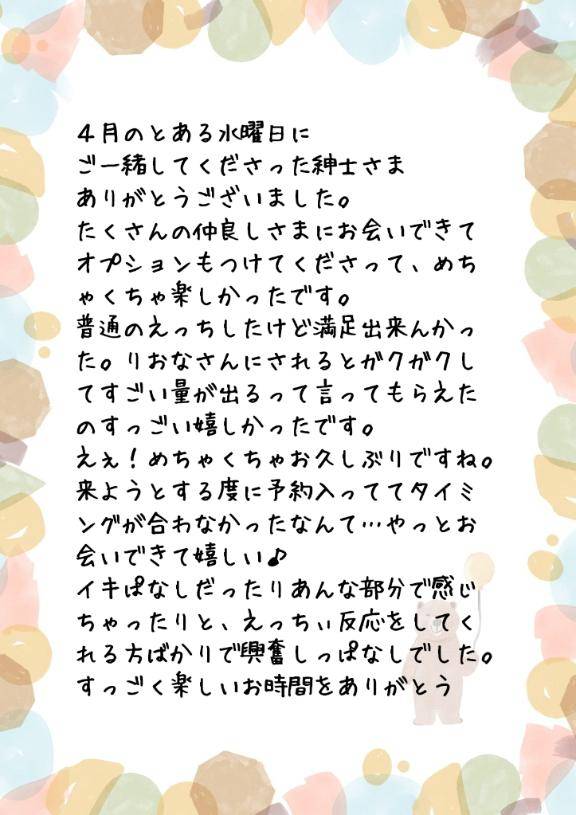 4月のとある水曜日に
ご一緒してくださった紳士さま
ありがとうございました。
たくさんの仲良しさまにお会いできて
オプションもつけてくださって、めち
ゃくちゃ楽しかったです。
普通のえっちしたけど満足出来んかっ
た。りおなさんにされるとガクガクし
てすごい量が出るって言ってもらえた
のすっごい嬉しかったです。
えぇ！めちゃくちゃお久しぶりですね。
来ようとする度に予約入っててタイミ
ングが合わなかったなんて…やっとお
会いできて嬉しい♪
イキぱなしだったりあんな部分で感じ
ちゃったりと、えっちぃ反応をしてく
れる方ばかりで興奮しっぱなしでした。
すっごく楽しいお時間をありがとう